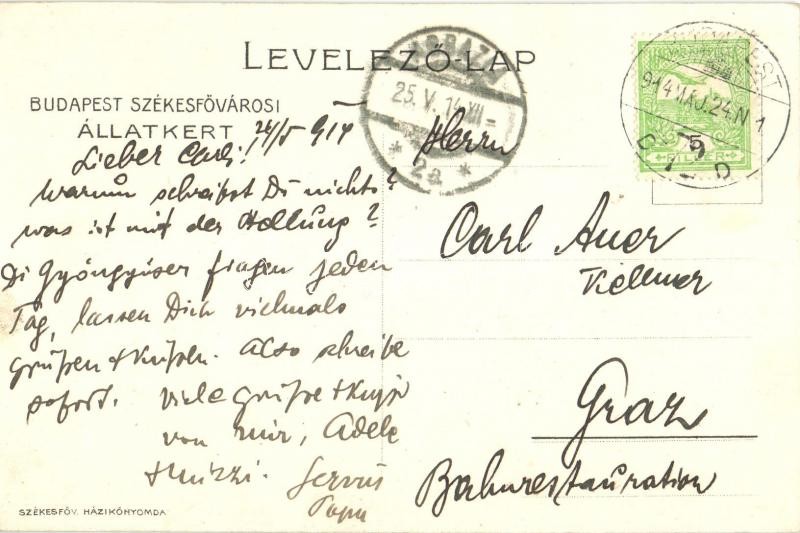 LEVELEZŐ-LAP
BUDAPEST SZÉKESFŐVÁROSI
ÁLLATKERT
24/5 914
Lieber Carli!
Warum schreibst Du nichts?
was ist mit der Stellung?
Di Gyöngyöser fragen jeden
Tag, lassen Dich vielmals
grüßen + küssen. Also schreibe
sofort. Viele Grüße + Küsse
von mir, Adele
+ Mizzi. Servus
Papa
Herrn
Carl Auer
Kellner
Graz
Bahnrestauration
SZÉKESFŐV. HÁZIKÖNYOMDA
GRAZ
25.V.14 XII
* 2a *
914 MÁJ. 24. N 1
5
FILLÉR